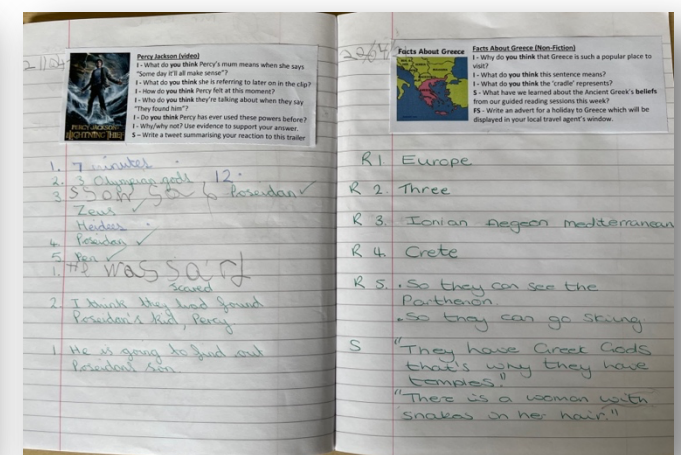 21/04
PERCY JACKSON
LIGHTNING THIEF
Percy Jackson (video)
I - What do you think Percy's mum means when she says
"Some day it'll all make sense"?
I - What do you think she is referring to later on in the clip?
I - How do you think Percy felt at this moment?
I - Who do you think they're talking about when they say
"They found him"?
I - Do you think Percy has ever used these powers before?
I - Why/why not? Use evidence to support your answer.
S – Write a tweet summarising your reaction to this trailer
1. 7 minutes
2. 3 Olympian gods 12.
3 Poseidan ✓
Zeus ✓
Heidees
4. Poseidan ✓
5. Pen ✓
1. He was
Scared
2. I think they had found
Poseidan's kid, Percy
1 He is going to find out
Poseidan's son
22/04
Facts About Greece
Facts About Greece (Non-Fiction)
I - Why do you think that Greece is such a popular place to
visit?
I - What do you think this sentence means?
I - What do you think the 'cradle' represents?
S - What have we learned about the Ancient Greek's beliefs
from our guided reading sessions this week?
FS - Write an advert for a holiday to Greece which will be
displayed in your local travel agent's window.
R 1 Europe
R 2. Three
R 3. Ionian Aegean mediterranean
R 4. Crete
R 5. • So they can see the
Parthenon.
• So they can go skiing.
S "They have Greek Gods
that's why they have
temples."
"There is a woman with
snakes in her hair."